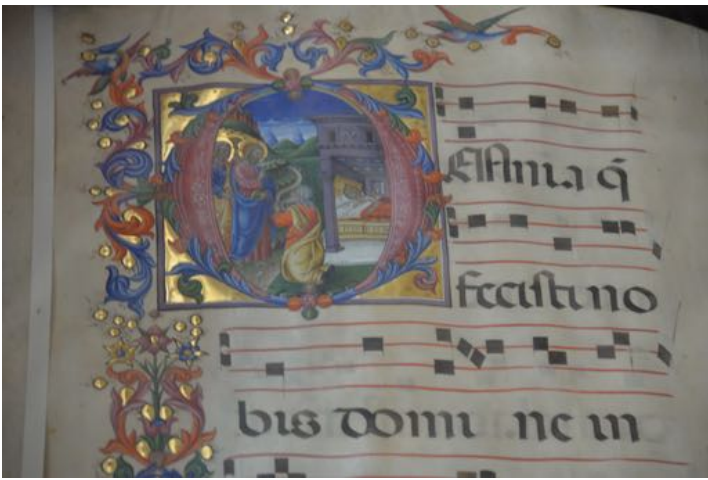 OMnia q̄
fecisti no
bis domi ne in